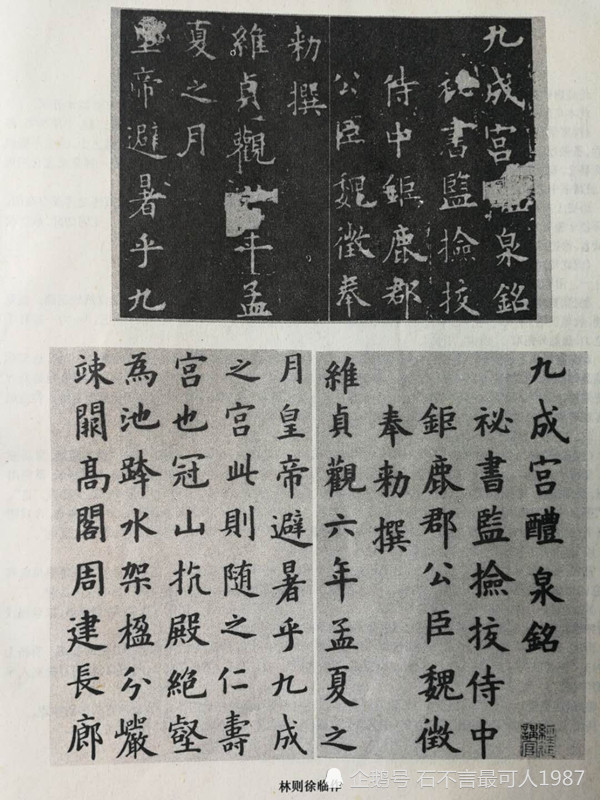 九成宮醴泉銘
祕書監撿挍
侍中鉅鹿郡
公臣魏徵奉
勑撰
維貞觀年孟
夏之月
皇帝避暑乎九
九成宮醴泉銘
祕書監撿挍侍中
鉅鹿郡公臣魏徵
奉勑撰
維貞觀六年孟夏之
月皇帝避暑乎九成
之宮此則随之仁壽
宮也冠山抗殿絕壑
為池跨水架楹分巖
竦闕髙閣周建長廊
林则徐临作
企鹅号 石不言最可人1987